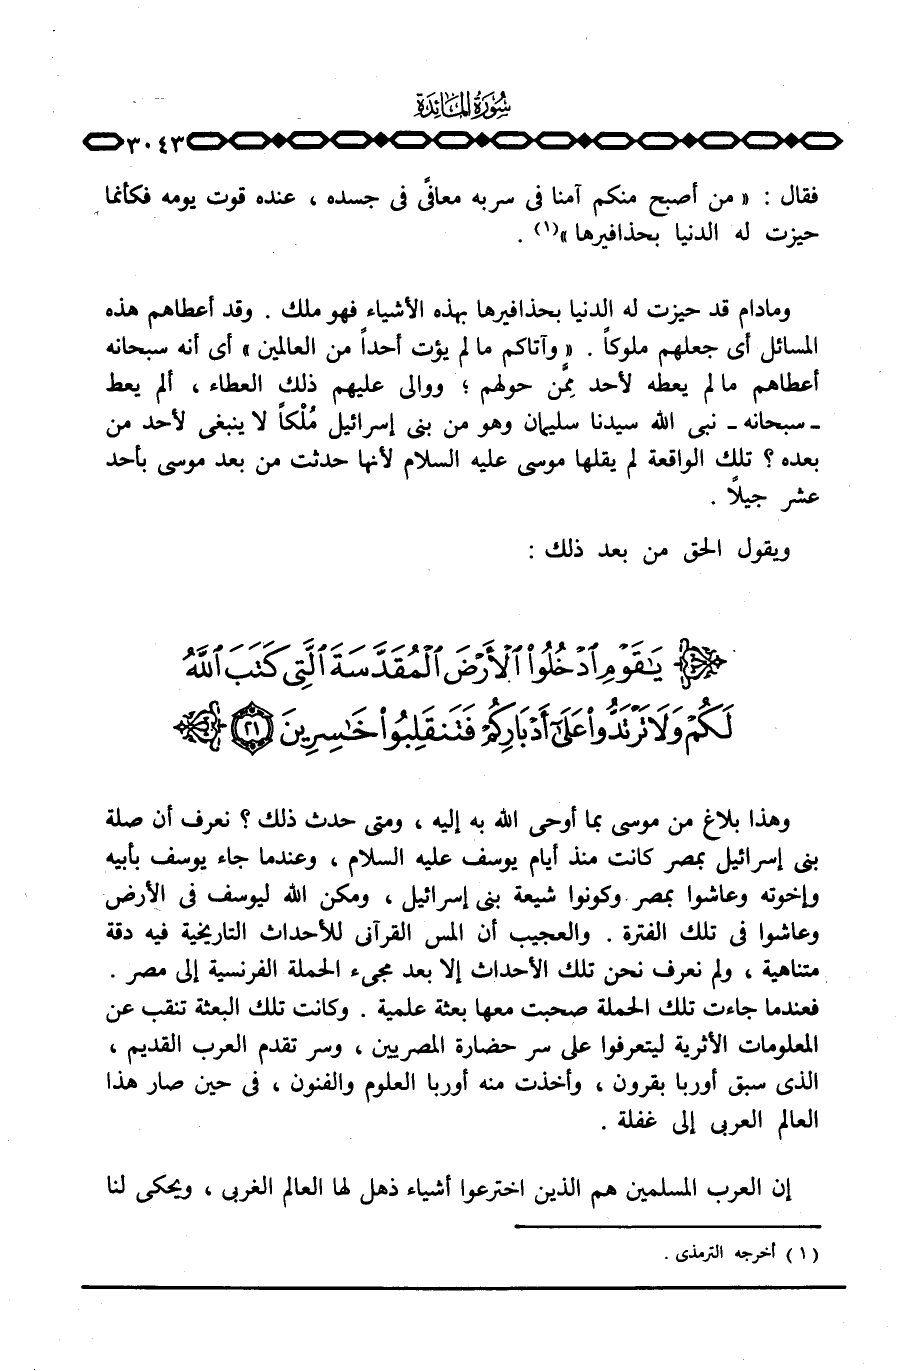 سُورَةُ المَائِدَةِ
٣٠٤٣
فقال : « من أصبح منكم آمنا فى سربه معافًى فى جسده ، عنده قوت يومه فكأنما
حيزت له الدنيا بحذافيرها »(١) .
ومادام قد حيزت له الدنيا بحذافيرها بهذه الأشياء فهو ملك . وقد أعطاهم هذه
المسائل أى جعلهم ملوكاً . « وآتاكم ما لم يؤت أحداً من العالمين » أى أنه سبحانه
أعطاهم ما لم يعطه لأحد مِمَّن حولهم ؛ ووالى عليهم ذلك العطاء ، ألم يعط
- سبحانه - نبى الله سيدنا سليمان وهو من بنى إسرائيل مُلْكاً لا ينبغى لأحد من
بعده ؟ تلك الواقعة لم يقلها موسى عليه السلام لأنها حدثت من بعد موسى بأحد
عشر جيلاً .
ويقول الحق من بعد ذلك :
يَٰقَوْمِ ٱدْخُلُوا۟ ٱلْأَرْضَ ٱلْمُقَدَّسَةَ ٱلَّتِى كَتَبَ ٱللَّهُ
لَكُمْ وَلَا تَرْتَدُّوا۟ عَلَىٰٓ أَدْبَارِكُمْ فَتَنقَلِبُوا۟ خَٰسِرِينَ ٢١
وهذا بلاغ من موسى بما أوحى الله به إليه ، ومتى حدث ذلك ؟ نعرف أن صلة
بنى إسرائيل بمصر كانت منذ أيام يوسف عليه السلام ، وعندما جاء يوسف بأبيه
وإخوته وعاشوا بمصر وكونوا شيعة بنى إسرائيل ، ومكن الله ليوسف فى الأرض
وعاشوا فى تلك الفترة . والعجيب أن المس القرآنى للأحداث التاريخية فيه دقة
متناهية ، ولم نعرف نحن تلك الأحداث إلا بعد مجىء الحملة الفرنسية إلى مصر .
فعندما جاءت تلك الحملة صحبت معها بعثة علمية . وكانت تلك البعثة تنقب عن
المعلومات الأثرية ليتعرفوا على سر حضارة المصريين ، وسر تقدم العرب القديم ،
الذى سبق أوربا بقرون ، وأخذت منه أوربا العلوم والفنون ، فى حين صار هذا
العالم العربى إلى غفلة .
إن العرب المسلمين هم الذين اخترعوا أشياء ذهل لها العالم الغربى ، ويحكى لنا
(١) أخرجه الترمذى .